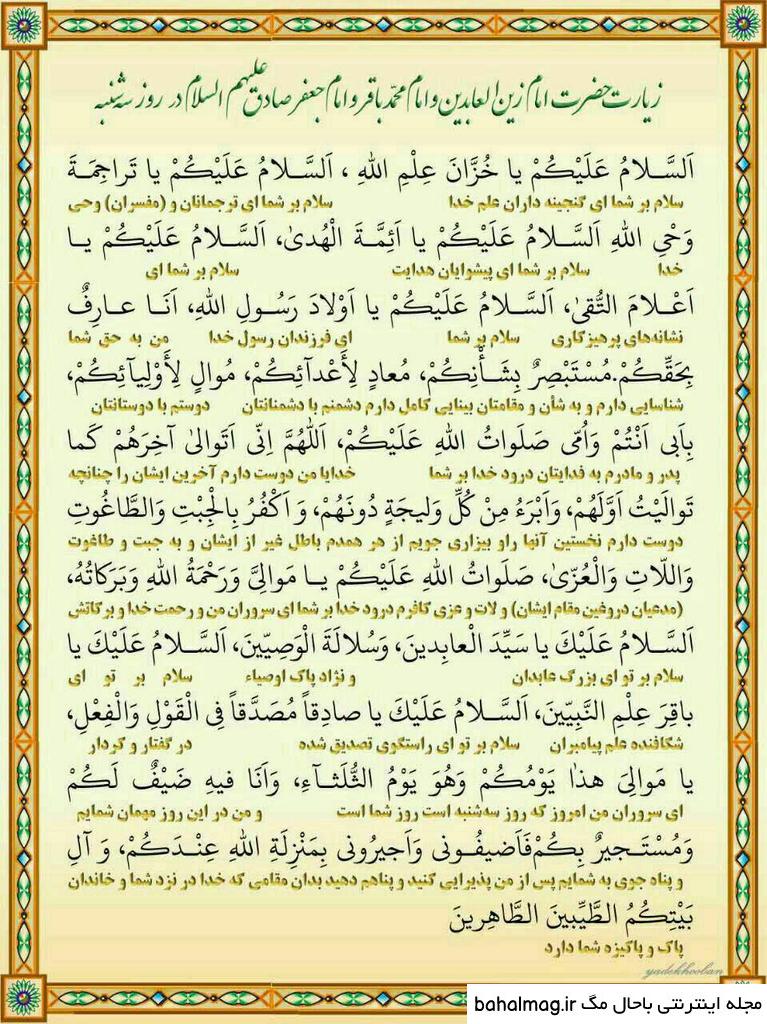 زیارت حضرت امام زین العابدین و امام محمد باقر و امام جعفر صادق علیهم السلام در روز سه شنبه
اَلسَّلامُ عَلَیْکُمْ یا خُزَّانَ عِلْمِ اللهِ ، اَلسَّلامُ عَلَیْکُمْ یا تَراجِمَةَ
سلام بر شما ای گنجینه داران علم خدا سلام بر شما ای ترجمانان و (مفسران) وحی
وَحْیِ اللهِ اَلسَّلامُ عَلَیْکُمْ یا اَئِمَّةَ الْهُدیٰ، اَلسَّلامُ عَلَیْکُمْ یا
خدا سلام بر شما ای پیشوایان هدایت سلام بر شما ای
اَعْلامَ التُّقیٰ، اَلسَّلامُ عَلَیْکُمْ یا اَوْلادَ رَسُولِ اللهِ، اَنَا عارِفٌ
نشانه‌های پرهیزکاری سلام بر شما ای فرزندان رسول خدا من به حق شما
بِحَقِّکُمْ.مُسْتَبْصِرٌ بِشَأْنِکُمْ، مُعادٍ لِأَعْدآئِکُمْ، مُوالٍ لِأَوْلِیآئِکُمْ،
شناسایی دارم و به شأن و مقامتان بینایی کامل دارم دشمنم با دشمنانتان دوستم با دوستانتان
بِاَبی اَنْتُمْ وَاُمّی صَلَواتُ اللهِ عَلَیْکُمْ، اَللّٰهُمَّ اِنّی اَتَوالیٰ آخِرَهُمْ کَما
پدر و مادرم به فدایتان درود خدا بر شما خدایا من دوست دارم آخرین ایشان را چنانچه
تَوالَیْتُ اَوَّلَهُمْ، وَاَبْرَءُ مِنْ کُلِّ وَلیجَةٍ دُونَهُمْ، وَ اَکْفُرُ بِالْجِبْتِ وَالطَّاغُوتِ
دوست دارم نخستین آنها راو بیزاری جویم از هر همدم باطل غیر از ایشان و به جبت و طاغوت
وَاللّاتِ وَالْعُزّیٰ، صَلَواتُ اللهِ عَلَیْکُمْ یا مَوالِیَّ وَرَحْمَةُ اللهِ وَبَرَکاتُهُ،
(مدعیان دروغین مقام ایشان) و لات و عزی کافرم درود خدا بر شما ای سروران من و رحمت خدا و برکاتش
اَلسَّلامُ عَلَیْكَ یا سَیِّدَ الْعابِدینَ، وَسُلالَةَ الْوَصِیّینَ، اَلسَّلامُ عَلَیْكَ یا
سلام بر تو ای بزرگ عابدان و نژاد پاک اوصیاء سلام بر تو ای
باقِرَ عِلْمِ النَّبِیّینَ، اَلسَّلامُ عَلَیْكَ یا صادِقاً مُصَدَّقاً فِی الْقَوْلِ وَالْفِعْلِ،
شکافنده علم پیامبران سلام بر تو ای راستگوی تصدیق شده در گفتار و کردار
یا مَوالِیَ هذٰا یَوْمُکُمْ وَهُوَ یَوْمُ الثُّلَثآءِ، وَاَنَا فیهِ ضَیْفٌ لَکُمْ
ای سروران من امروز که روز سه‌شنبه است روز شما است و من در این روز مهمان شمایم
وَمُسْتَجیرٌ بِکُمْ فَاَضیفُونی وَاَجیرُونی بِمَنْزِلَةِ اللهِ عِنْدَکُمْ، وَ آلِ
و پناه جوی به شمایم پس از من پذیرایی کنید و پناهم دهید بدان مقامی که خدا در نزد شما و خاندان
بَیْتِکُمُ الطَّیِّبینَ الطَّاهِرینَ
پاک و پاکیزه شما دارد
yadekhooban
مجله اینترنتی باحال مگ bahalmag.ir